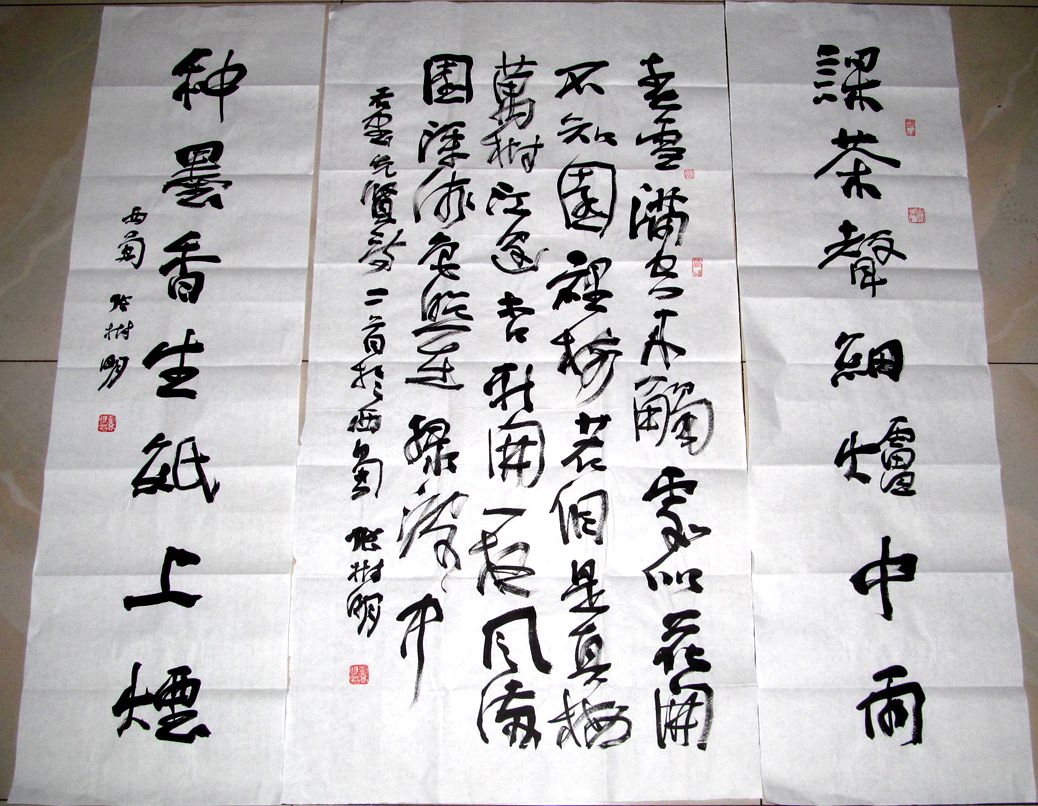 課茶聲細爐中雨
春雪滿空來觸處似花開
不知園裡樹若個是真梅
萬樹江邊杏新開一夜風滿
園深淺色照在綠波中
右書先賢詩二首於西蜀 張樹明
种墨香生紙上煙
西蜀 張樹明